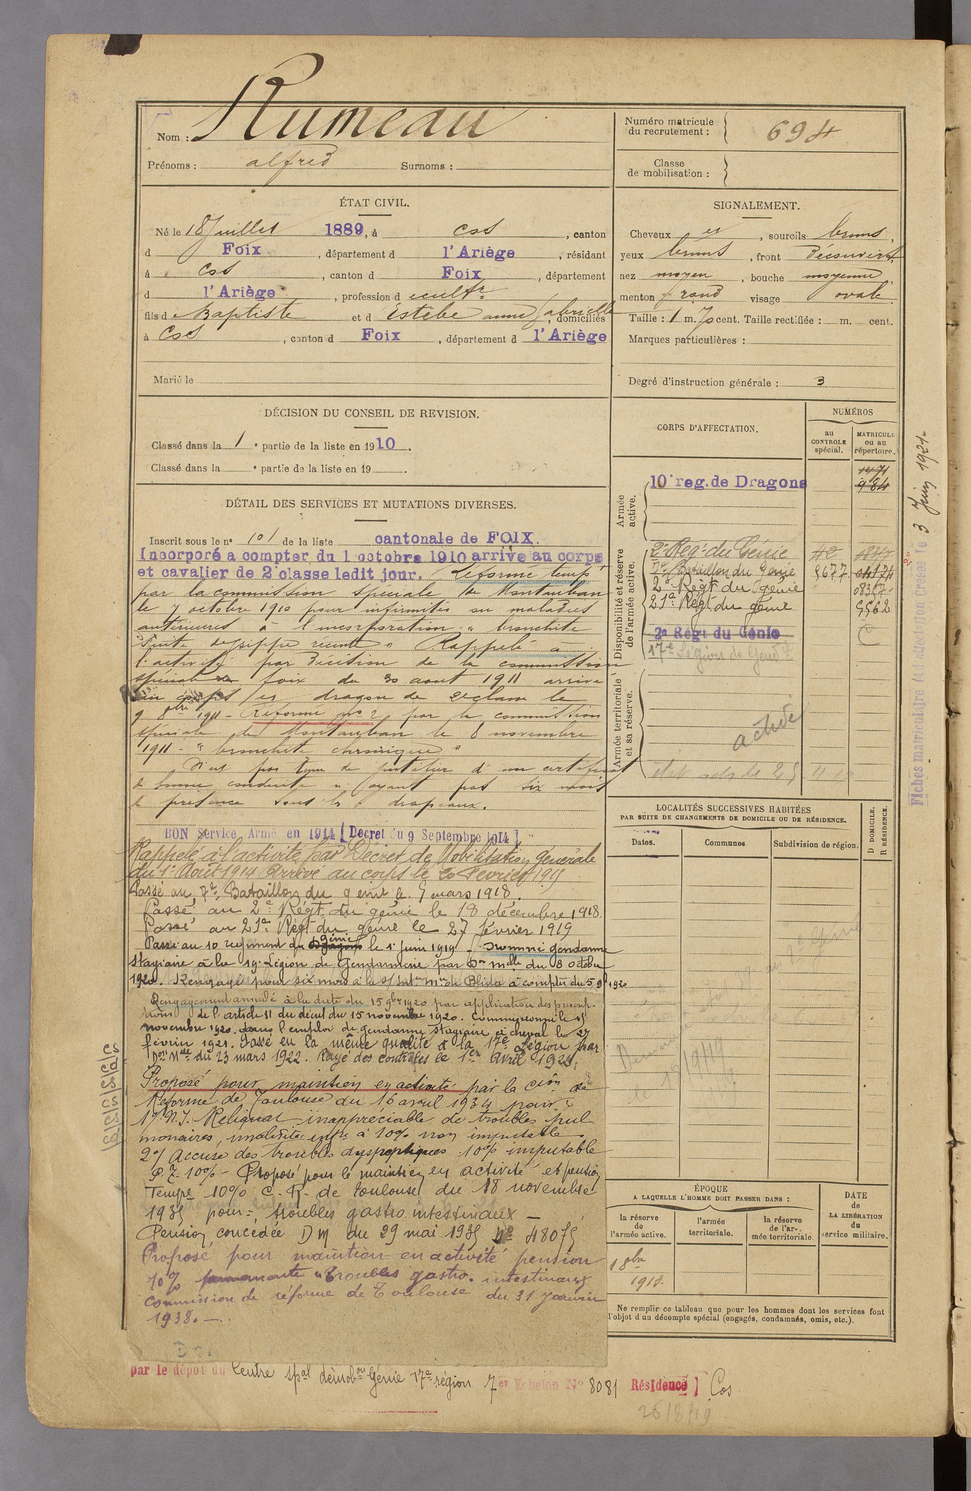 Nom : Rumeau
Prénoms : alfred Surnoms :
ÉTAT CIVIL.
Né le 18 Juillet 1889, à Cos , canton
d Foix , département d l'Ariège , résidant
à Cos , canton d Foix , département
d l'Ariège , profession d cultr
fils de Baptiste et d' Estèbe anne Gabrielle , domiciliés
à Cos , canton d Foix , département d l'Ariège
Marié le
DÉCISION DU CONSEIL DE REVISION.
Classé dans la 1 e partie de la liste en 1910.
Classé dans la e partie de la liste en 19 .
DÉTAIL DES SERVICES ET MUTATIONS DIVERSES.
Inscrit sous le no 101 de la liste cantonale de FOIX.
Incorporé a compter du 1 octobre 1910 arrivé au corps
et cavalier de 2e classe ledit jour. Réformé tempre
par la commission spéciale de Montauban
le 7 octobre 1910 pour infirmités ou maladies
antérieures à l'incorporation " bronchite
suite de grippe récente " Rappelé à
l'activité par décision de la commission
spéciale de foix du 30 aout 1911 arrivé
au corps dragon
9 8bre 1911 - Réformé no 2 par la commission
spéciale de Montauban le 8 novembre
1911 - " bronchite chronique "
N'est pas tenu de justifier d'un certificat
de bonne conduite n'ayant pas six mois
de présence sous les drapeaux.
BON Service Armé en 1914 [Decret du 9 Septembre 1914]
Rappelé à l'activité par Décret de Mobilisation Générale
du 1er Août 1914 Arrivé au corps le 20 Février 1915
Passé au 7e Bataillon du génie le 9 mars 1918.
Passé au 2e Régt du génie le 18 décembre 1918.
Passé au 21e Régt du génie le 27 février 1919
Passé au 10 regiment du génie le 1er juin 1919 - Nommé gendarme
stagiaire à la 19e Légion de Gendarmerie par Don mlle du 8 Octobre
1920. Rengagé pour six mois à la s/Intce mre de Blida à compter du 5 9bre 1920
Rengagement annulé à la date du 15 9bre 1920 par application des prescrip-
tions de l'article 11 du décret du 15 novembre 1920. Commissionné le 15
novembre 1920 dans l'emploi de gendarme stagiaire à cheval le 27
février 1921. Passé en la même qualité à la 17e Légion par
Don Mlle du 23 mars 1922. Rayé des contrôles le 1er avril 1921.
Proposé pour maintien en activité par la cion de
Réforme de Toulouse du 16 avril 1934 pour :
1o/ N.I. Reliquat inappréciable de troubles pul-
monaires, invalidité infre à 10% non imputable
2o/ Accuse des troubles dyspeptiques 10% imputable
P.T. 10% - Proposé pour le maintien en activité et pension
Tempre 10% C.R. de Toulouse du 18 novembre
1935 pour : troubles gastro intestinaux -
Pension concédée D M du 29 mai 1935 No 48075
Proposé pour maintien en activité pension
10% permanente " Troubles gastro-intestinaux
Commission de réforme de Toulouse du 31 janvier
1938. -
par le dépôt du Centre spal démobon Génie 17e région 7er Echelon No 8081 Résidence ] Cos
26/8/19
Numéro matricule
du recrutement : 694
Classe
de mobilisation :
SIGNALEMENT.
Cheveux et , sourcils bruns ,
yeux bruns , front découvert ,
nez moyen , bouche moyenne ,
menton rond visage ovale
Taille : 1 m. 70 cent. Taille rectifiée : m. cent.
Marques particulières :
Degré d'instruction générale : 3
CORPS D'AFFECTATION.
NUMÉROS
au CONTROLE spécial.
MATRICULE ou au répertoire.
Armée active.
10e reg. de Dragons 984
Disponibilité et réserve de l'armée active.
2e Reg. du Génie
7e Bataillon du Génie 8677
2e Régt du génie
21e Régt du génie 9562
2e Régt du Génie C
17e Légion de Gendie
Armée territoriale et sa réserve.
activité
LOCALITÉS SUCCESSIVES HABITÉES
PAR SUITE DE CHANGEMENTS DE DOMICILE OU DE RÉSIDENCE.
Dates. Communes Subdivision de région.
D DOMICILE.
R RÉSIDENCE.
ÉPOQUE
A LAQUELLE L'HOMME DOIT PASSER DANS :
la réserve de l'armée active.
l'armée territoriale.
la réserve de l'ar- mée territoriale.
DATE de LA LIBÉRATION du service militaire.
1 8bre
Ne remplir ce tableau que pour les hommes dont les services font
l'objet d'un décompte spécial (engagés, condamnés, omis, etc.).
Fiches matriculaire et d'affectation Créées le 3 Juin 1921.